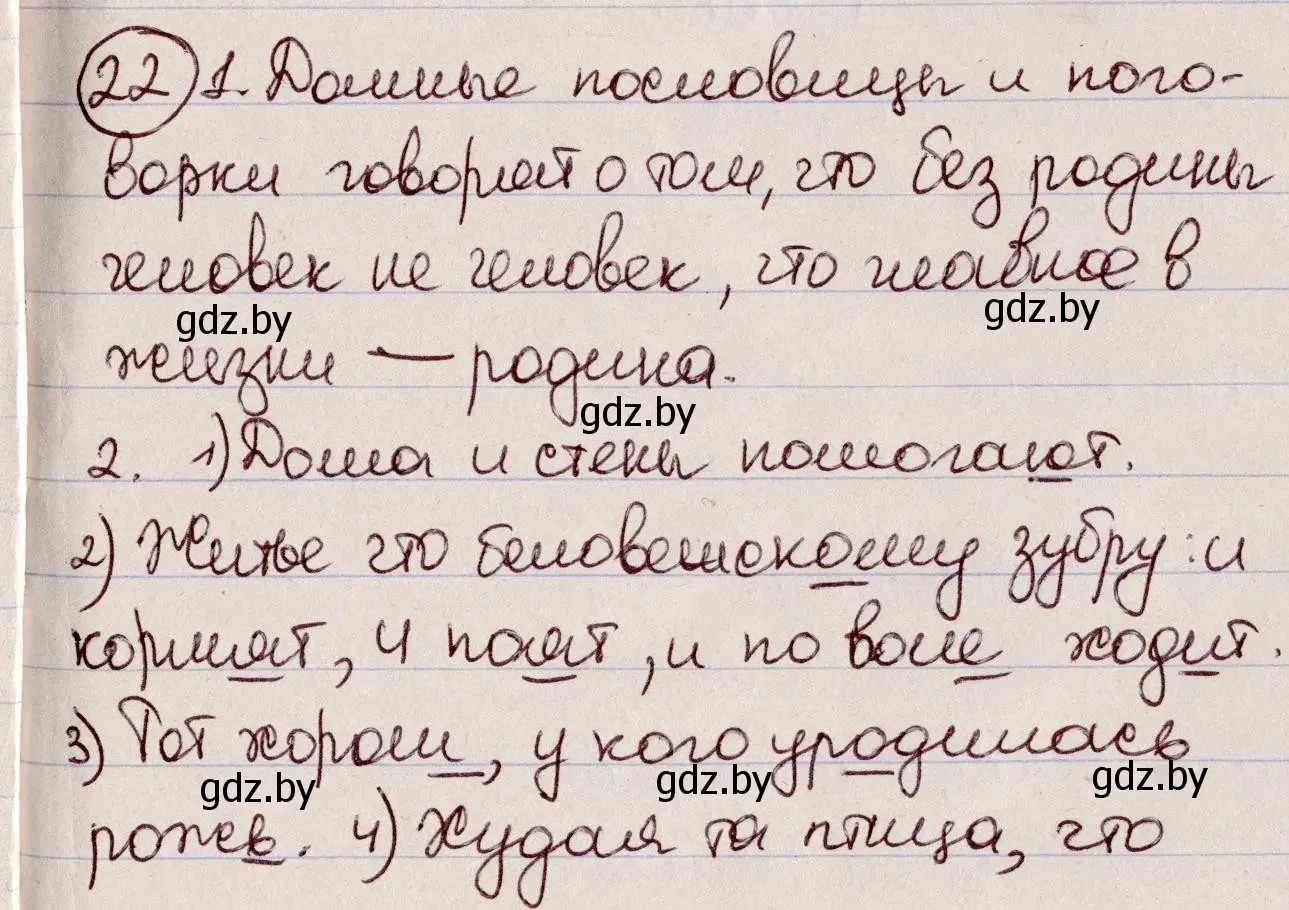 22 1. Данные пословицы и пого-
ворки говорят о том, что без родины
человек не человек, что главное в
gdz.by gdz.by
жизни — родина.
gdz.by
2. 1) Дома и стены помогают.
2) Житье что беловешскому зубру: и
кормят, и поят, и по воле ходит.
3) Тот хорош, у кого уродилась
gdz.by gdz.by gdz.by
рожь. 4) Худая та птица, что